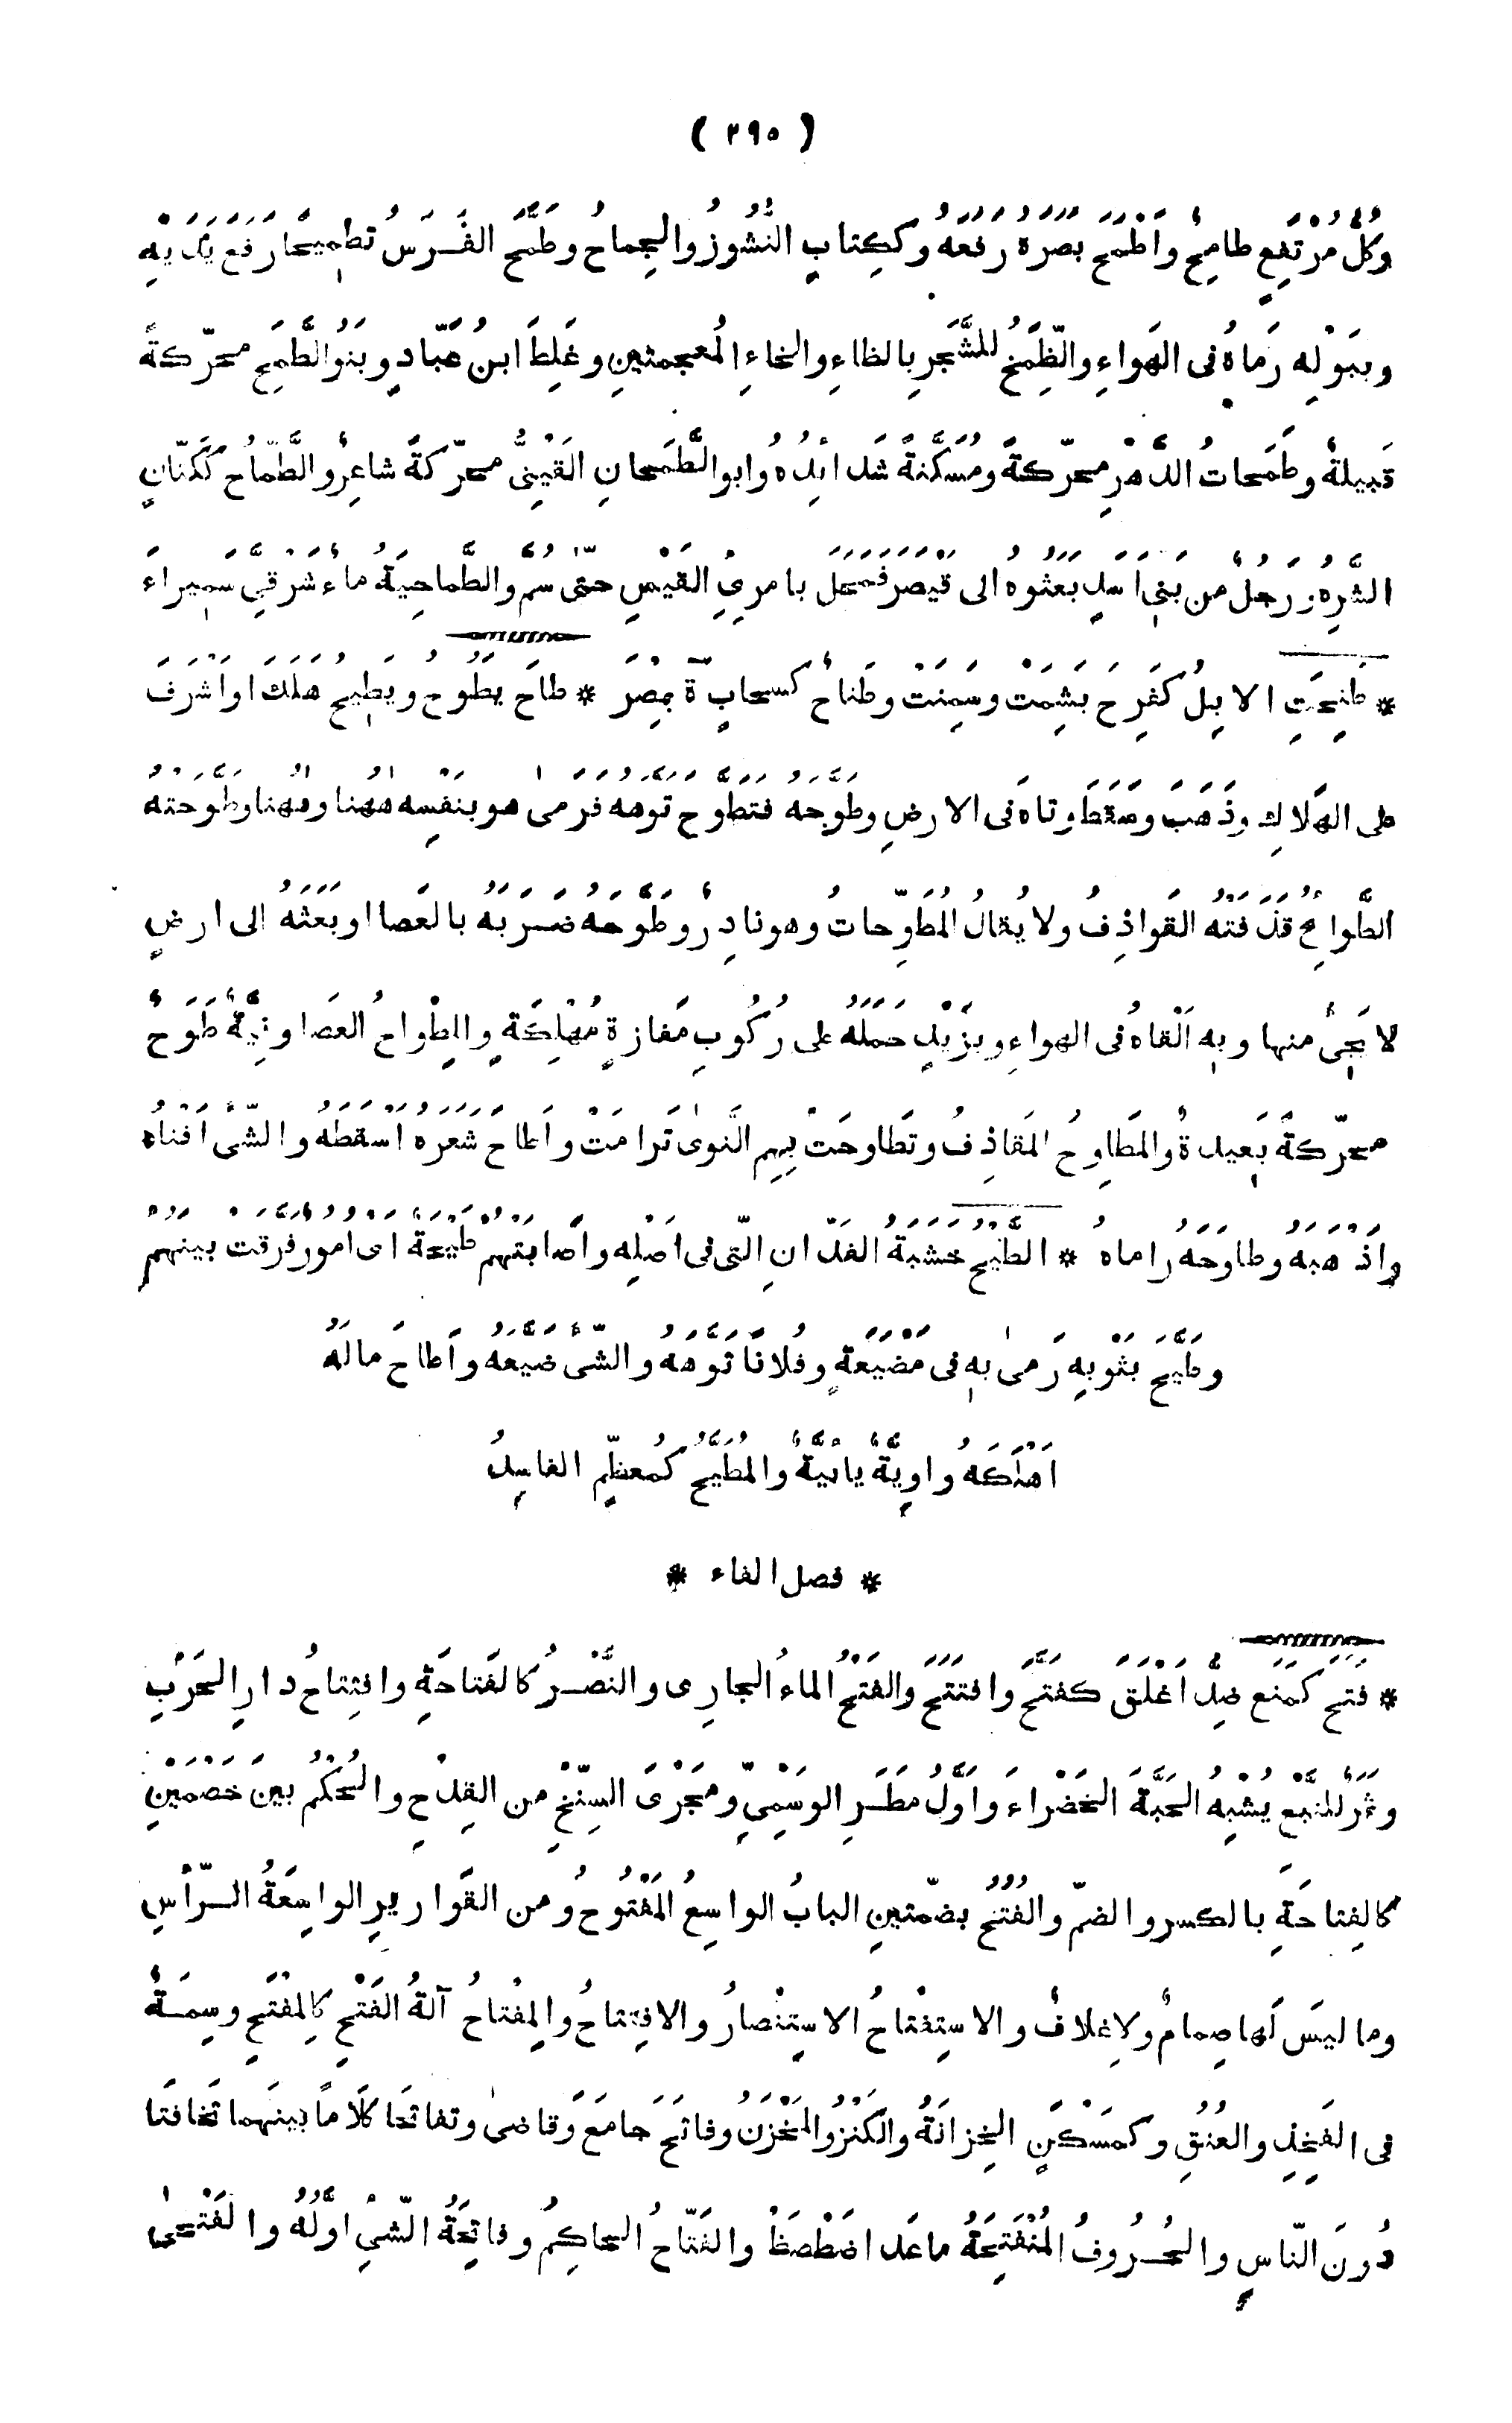 ( ٢٩٥ )
وَكُلُّ مُرْتَفِعٍ طامِحٌ وَاَطْمَحَ بصرَهُ رَفَعَهُ وَكَكِتابٍ النُّشُوزُ والجِماحُ وطَمَّحَ الفَرَسُ تَطْمِيحًا رَفَعَ يَدَيْهِ
وبِبَوْلِهِ رَماهُ فى الهَواءِ والظِّمَخُ للشَّجَرِ بالظاءِ والخاءِ المُعجمتينِ وغَلِطَ ابنُ عَبّادٍ وبَنُو الطَّمَحِ محرّكةً
قَبيلةٌ وطَمَحاتُ الدَّهْرِ محرّكةً ومُسَكَّنةً شدائدُه وابو الطَّمَحانِ القَيْنِىُّ محرّكةً شاعِرٌ والطَّمّاحُ كَكَتّانٍ
الشَّرِهُ ورَجُلٌ من بَنِى اَسَدٍ بَعَثُوهُ الى قَيْصَرَ فَمَحَلَ بامرِئِ القَيْسِ حتّى سُمَّ والطَّمّاحِيَّةُ ماءٌ شَرْقِىَّ سَمِيراءَ
* طَنِحَتِ الابِلُ كفَرِحَ بَشِمَتْ وسَمِنَتْ وطَناحُ كسحابٍ ةٌ بِمِصْرَ * طاحَ يَطُوحُ ويَطِيحُ هَلَكَ اواَشْرَفَ
على الهَلاكِ وذَهَبَ وسَقَطَ وتاهَ فى الارضِ وطَوَّحَهُ فتَطَوَّحَ تَوَّهَهُ فَرَمىٰ هو بنَفْسِه ههُنا وههُنا وطَوَّحَتْهُ
الطَّوائِحُ قَذَفَتْهُ القَواذِفُ ولا يُقالُ المُطَوِّحاتُ وهو نادِرٌ وطَوَّحَهُ ضَرَبَهُ بالعَصا او بَعَثَهُ الى ارضٍ
لا يَجِىءُ منها وبِهِ اَلْقاهُ فى الهواءِ وبِزَيْدٍ حَمَلَهُ على رُكُوبِ مَفازةٍ مُهْلِكَةٍ والمِطْواحُ العَصا ونِيَّةٌ طَوَحٌ
محرّكةً بَعِيدةٌ والمَطاوِحُ المَقاذِفُ وتَطاوَحَتْ بِهِمِ النَّوىٰ تَرامَتْ واَطاحَ شَعَرَهُ اَسْقَطَهُ والشّىءَ اَفْناهُ
واَذْهَبَهُ وطاوَحَهُ راماهُ * الطَّيْحُ خَشَبَةُ الفَدّانِ الّتى فى اَصْلِه واَصابَتْهُم طَيْحَةٌ اى امُورٌ فَرَّقَتْ بينَهُمْ
وطَيَّحَ بثَوْبِهِ رَمىٰ بِهِ فى مَضْيَعَةٍ وفُلانًا تَوَّهَهُ والشّىءَ ضَيَّعَهُ واَطاحَ مالَهُ
اَهْلَكَهُ واوِيَّةٌ يائيّةٌ والمُطَيَّحُ كمُعظَّمٍ الفاسِدُ
* فصل الفاء *
* فَتَحَ كمَنَعَ ضِدُّ اَغْلَقَ كفَتَّحَ وافتَتَحَ والفَتْحُ الماءُ الجارِى والنَّصْرُ كالفَتاحَةِ وافتِتاحُ دارِ الحَرْبِ
وثَمَرٌ للنَّبْعِ يُشْبِهُ الحَبَّةَ الخَضْراءَ واَوَّلُ مطَرِ الوَسْمِىِّ ومَجْرَى السِّنْخِ من القِدْحِ والحُكْمُ بينَ خَصْمَيْنِ
كالفِتاحَةِ بالكسرِ والضمِّ والفُتُحُ بضمّتينِ البابُ الواسِعُ المَفْتُوحُ ومن القَوارِيرِ الواسِعَةُ الرّأسِ
وما ليسَ لَها صِمامٌ ولا غِلافٌ والاستِفْتاحُ الاستِنْصارُ والافتِتاحُ والمِفْتاحُ آلةُ الفَتْحِ كالمِفْتَحِ وسِمَةٌ
فى الفَخِذِ والعُنُقِ وكمَسْكَنٍ الخِزانَةُ والكَنْزُ والمَخْزَنُ وفاتَحَ جامَعَ وقاضىٰ وتفاتَحَا كَلامًا بينَهُما تَخافَتا
دُونَ النّاسِ والحُرُوفُ المُنْفَتِحَةُ ماعَدا ضَطْصَظْ والفَتّاحُ الحاكِمُ وفاتِحَةُ الشّىءِ اَوَّلُهُ والفَتْحىٰ